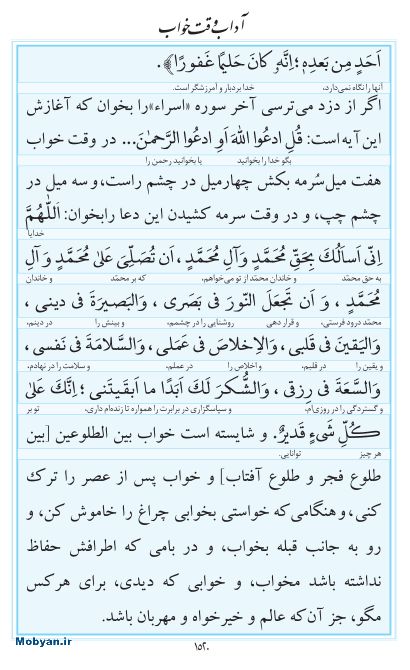 آداب وقت خواب
اَحَدٍ مِن بَعدِهِ ؛ اِنَّهُ کانَ حَلیمًا غَفورًا﴾.
آنها را نگاه نمی‌دارد، خدا بردبار و آمرزشگر است.
اگر از دزد می‌ترسی آخر سوره «اسراء» را بخوان که آغازش
این آیه است: قُلِ ادعُوا اللهَ اَوِ ادعُوا الرَّحمٰنَ... در وقت خواب
بگو خدا را بخوانید یا بخوانید رحمن را
هفت میل سُرمه بکش چهار میل در چشم راست، و سه میل در
چشم چپ، و در وقت سرمه کشیدن این دعا را بخوان: اَللّٰهُمَّ
خدایا
اِنّی اَسأَلُكَ بِحَقِّ مُحَمَّدٍ وَآلِ مُحَمَّدٍ ، اَن تُصَلِّیَ عَلیٰ مُحَمَّدٍ وَآلِ
به حق محمّد و خاندان محمّد از تو می‌خواهم، که بر محمّد و خاندان
مُحَمَّدٍ ، وَ اَن تَجعَلَ النّورَ فی بَصَری ، وَالبَصیرَةَ فی دینی ،
محمّد درود فرستی، و قرار دهی روشنایی را در چشمم، و بینش را در دینم،
وَالیَقینَ فی قَلبی ، وَالاِخلاصَ فی عَمَلی ، وَالسَّلامَةَ فی نَفسی ،
و یقین را در قلبم، و اخلاص را در عملم، و سلامت را در نهادم،
وَالسَّعَةَ فی رِزقی ، وَالشُّکرَ لَكَ اَبَدًا ما اَبقَیتَنی ؛ اِنَّكَ عَلیٰ
و گستردگی را در روزی‌ام، و سپاسگزاری در برابرت را همواره تا زنده‌ام داری، تو بر
کُلِّ شَیءٍ قَدیرٌ. و شایسته است خواب بین الطلوعین [بین
هر چیز توانایی.
طلوع فجر و طلوع آفتاب] و خواب پس از عصر را ترك
کنی، و هنگامی که خواستی بخوابی چراغ را خاموش کن، و
رو به جانب قبله بخواب، و در بامی که اطرافش حفاظ
نداشته باشد مخواب، و خوابی که دیدی، برای هرکس
مگو، جز آن‌که عالم و خیرخواه و مهربان باشد.
Mobyan.ir
۱۵۲۰